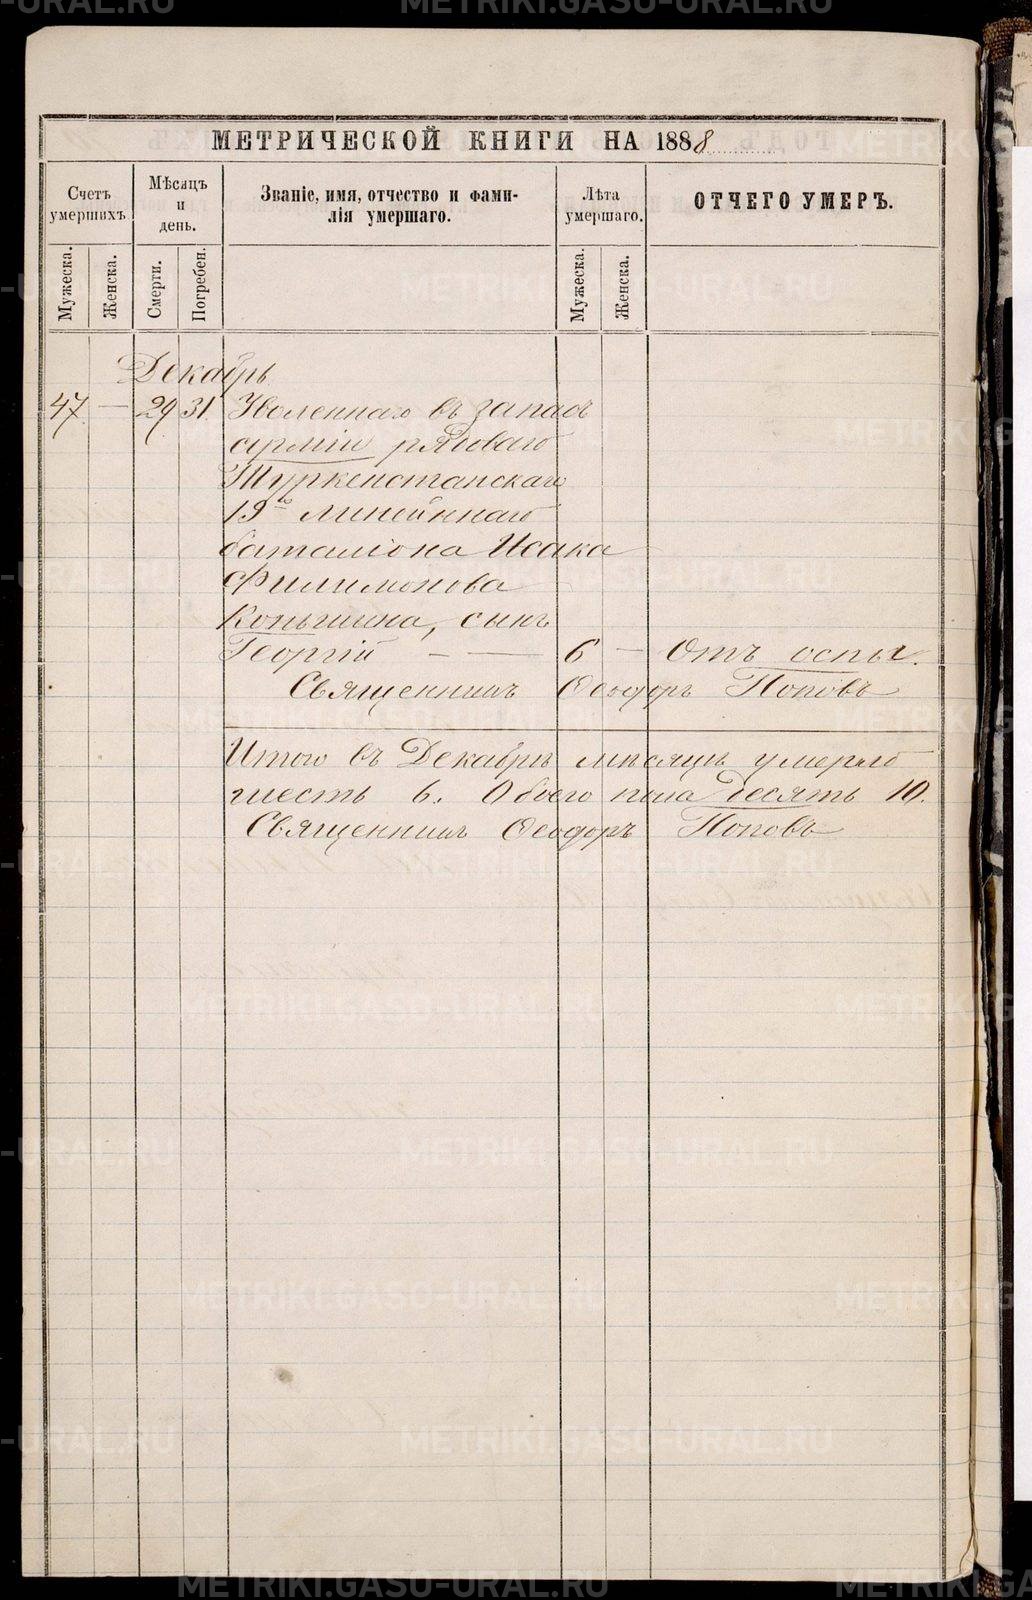 МЕТРИЧЕСКОЙ КНИГИ НА 1888
Счетъ умершихъ.
Мѣсяцъ и день.
Званіе, имя, отчество и фами-
лія умершаго.
Лѣта умершаго.
ОТЧЕГО УМЕРЪ.
Мужеска.
Женска.
Смерти.
Погребен.
Мужеска.
Женска.
Декабрь
47 — 29 31. Уволеннаго въ запасъ
арміи рядоваго
Туркенстанскаго
19го линейннаго
баталіона Исака
Филимонова
Коньшина, сынъ
Георгій — — 6 — Отъ оспы.
Священникъ Ѳеодоръ Поповъ
Итого въ Декабрѣ мѣсяцѣ умерло
шесть 6. Обоего пола десять 10.
Священникъ Ѳеодоръ Поповъ
METRIKI.GASO-URAL.RU